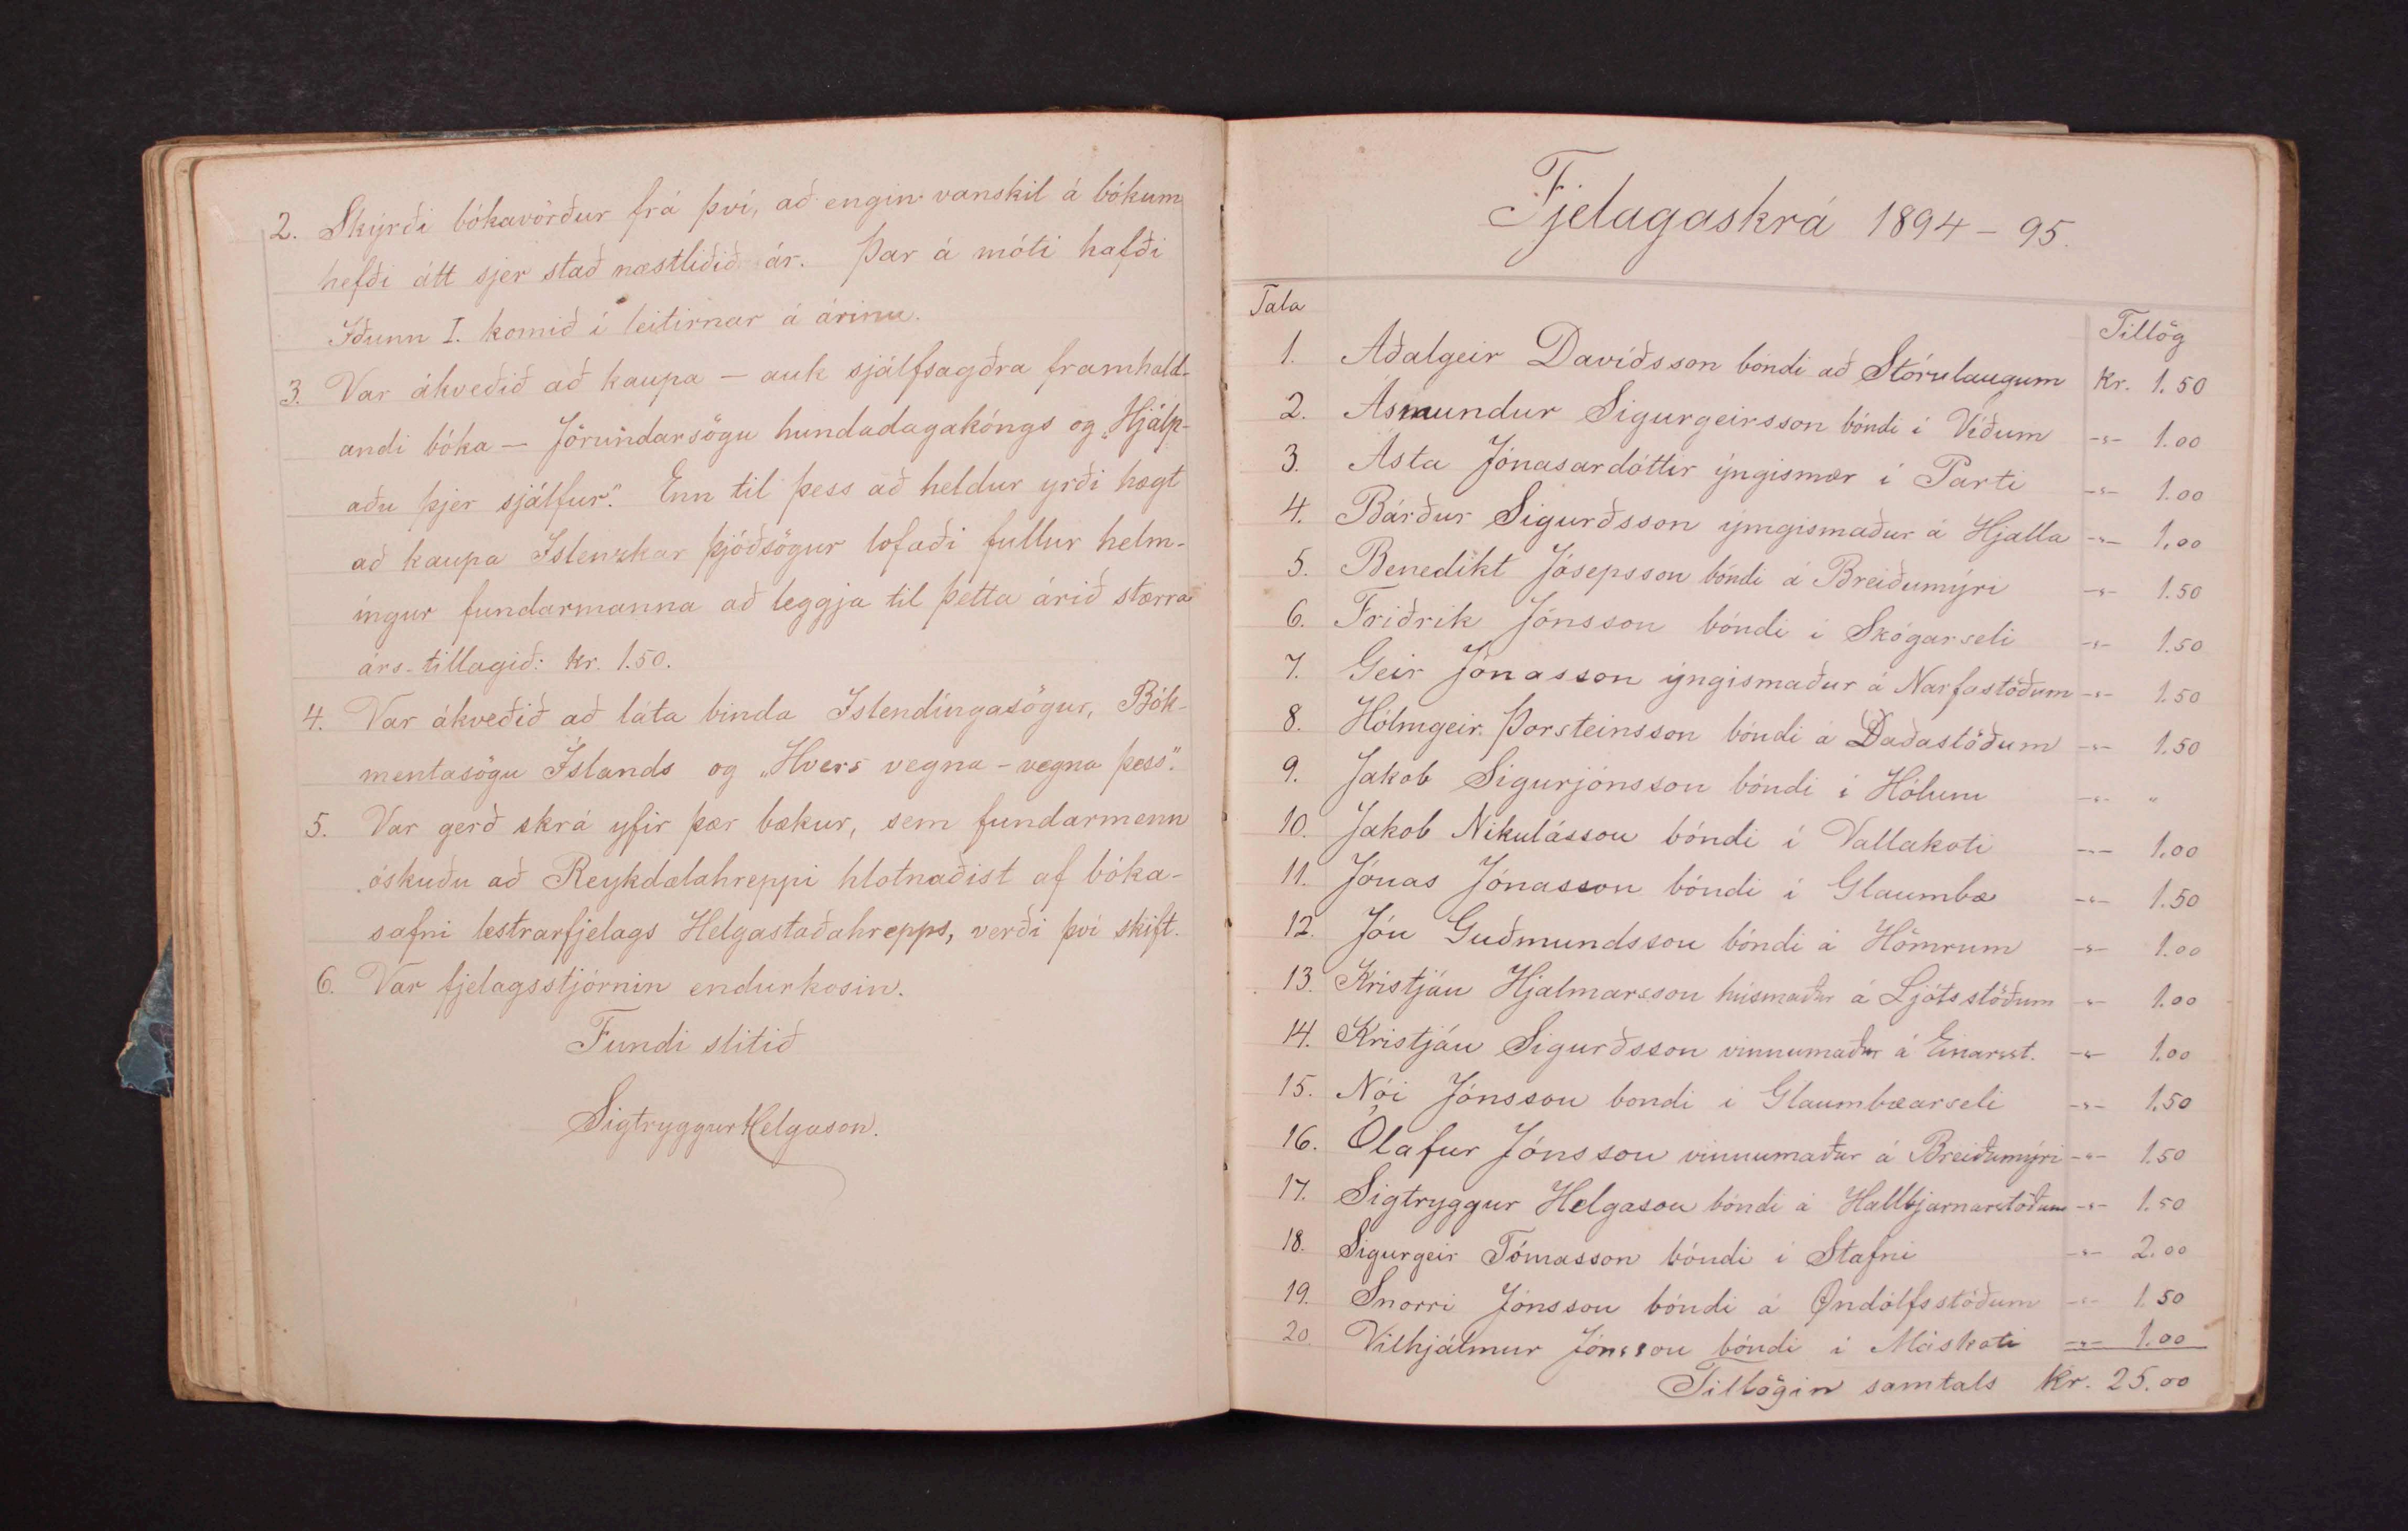 2. Skýrði bókavörður frá því, að engin vanskil á bókum
hefði átt sjer stað næstliðið ár. Þar á móti hafði
Iðunn I. komið í leitirnar á árinu.
3. Var ákveðið að kaupa — auk sjálfsagðra framhald-
andi bóka — Jörundarsögu hundadagakóngs og „Hjálp-
aðu þjer sjálfur". Enn til þess að heldur yrði hægt
að kaupa Islenzkar þjóðsögur lofaði fullur helm-
ingur fundarmanna að leggja til þetta árið stærra
árs-tillagið: kr. 1.50.
4. Var ákveðið að láta binda Islendingasögur, Bók-
mentasögu Íslands og „Hvers vegna - vegna þess".
5. Var gerð skrá yfir þær bækur, sem fundarmenn
óskuðu að Reykdælahreppi hlotnaðist af bóka-
safni lestrarfjelags Helgastaðahrepps, verði því skift.
6. Var fjelagsstjórnin endurkosin.
Fundi slitið
Sigtryggur Helgason.
Fjelagaskrá 1894 - 95.
Tala Tillög
1. Aðalgeir Davíðsson bóndi að Stórulaugum kr. 1.50
2. Ásmundur Sigurgeirsson bóndi í Víðum -"- 1.00
3. Ásta Jónasardóttir ýngismær í Parti -"- 1.00
4. Bárður Sigurðsson ýmgismaður á Hjalla -"- 1.00
5. Benedikt Jósepsson bóndi á Breiðumýri -"- 1.50
6. Friðrik Jónsson bóndi í Skógarseli -"- 1.50
7. Geir Jónasson ýngismaður á Narfastöðum -"- 1.50
8. Hólmgeir Þorsteinsson bóndi á Daðastöðum -"- 1.50
9. Jakob Sigurjónsson bóndi í Hólum -"- "
10. Jakob Nikulásson bóndi í Vallakoti -"- 1.00
11. Jónas Jónasson bóndi í Glaumbæ -"- 1.50
12. Jón Guðmundsson bóndi á Hömrum -"- 1.00
13. Kristján Hjalmarsson húsmaður á Ljótsstöðum -"- 1.00
14. Kristján Sigurðsson vinnumaður á Einarsst. -"- 1.00
15. Nói Jónsson bondi í Glaumbæarseli -"- 1.50
16. Ólafur Jónsson vinnumaður á Breiðumýri -"- 1.50
17. Sigtryggur Helgason bóndi á Hallbjarnarstöðum -"- 1.50
18. Sigurgeir Tómasson bóndi í Stafni -"- 2.00
19. Snorri Jónsson bóndi á Öndólfsstöðum -"- 1.50
20. Vilhjálmur Jónsson bóndi í Máskoti -"- 1.00
Tillögin samtals kr. 25.00